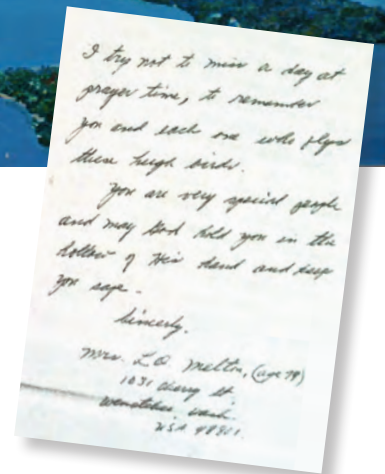 I try not to miss a day at
prayer time, to remember
you and each one who flys
these high birds.
You are very special people
and may God hold you in the
hollow of His hand and keep
you safe.
Sincerly,
Mrs. L.O. Melton, (age 79)
1031 Cherry St
Wenatchee, Wash.
USA 98801.